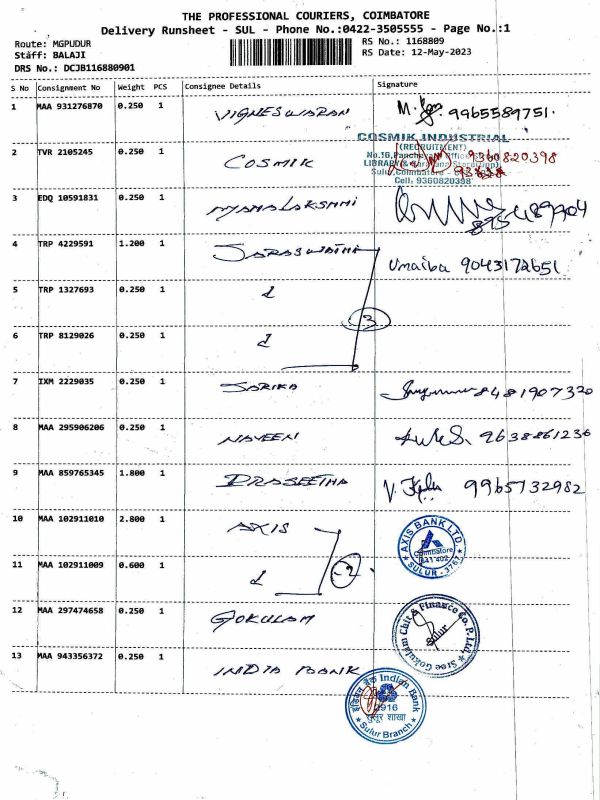 THE PROFESSIONAL COURIERS, COIMBATORE
Delivery Runsheet - SUL - Phone No.:0422-3505555 - Page No.:1
Route: MGPUDUR RS No.: 1168809
Staff: BALAJI RS Date: 12-May-2023
DRS No.: DCJB116880901
S No Consignment No Weight PCS Consignee Details Signature
1 MAA 931276870 0.250 1 VIGNESWARAN 9965589751.
COSMIK INDUSTRIAL
(RECRUITMENT)
2 TVR 2105245 0.250 1 COSMIK 9360820398
Cell: 9360820398
3 EDQ 10591831 0.250 1
4 TRP 4229591 1.200 1 SARASWATHI Umaiba 9043172651
5 TRP 1327693 0.250 1
3
6 TRP 8129026 0.250 1
7 IXM 2229035 0.250 1 SARIKA 8481907320
8 MAA 295906206 0.250 1 NAVEEN 9638861236
9 MAA 859765345 1.800 1 PRASEETHA 9965732982
10 MAA 102911010 2.800 1 AXIS AXIS BANK LTD.
Coimbatore
641 402
SULUR
11 MAA 102911009 0.600 1 2
12 MAA 297474658 0.250 1 GOKULAM Sree Gokulam Chit & Finance Co. P. Ltd.
Sulur
13 MAA 943356372 0.250 1 INDIA BANK
इंडियन बैंक Indian Bank
सुलूर शाखा
Sulur Branch